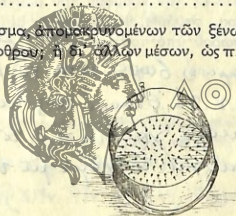 σμα, ἀπομακρυνομένων τῶν ξένω
ρθρου; ἢ δι᾽ ἄλλων μέσων, ὡς π